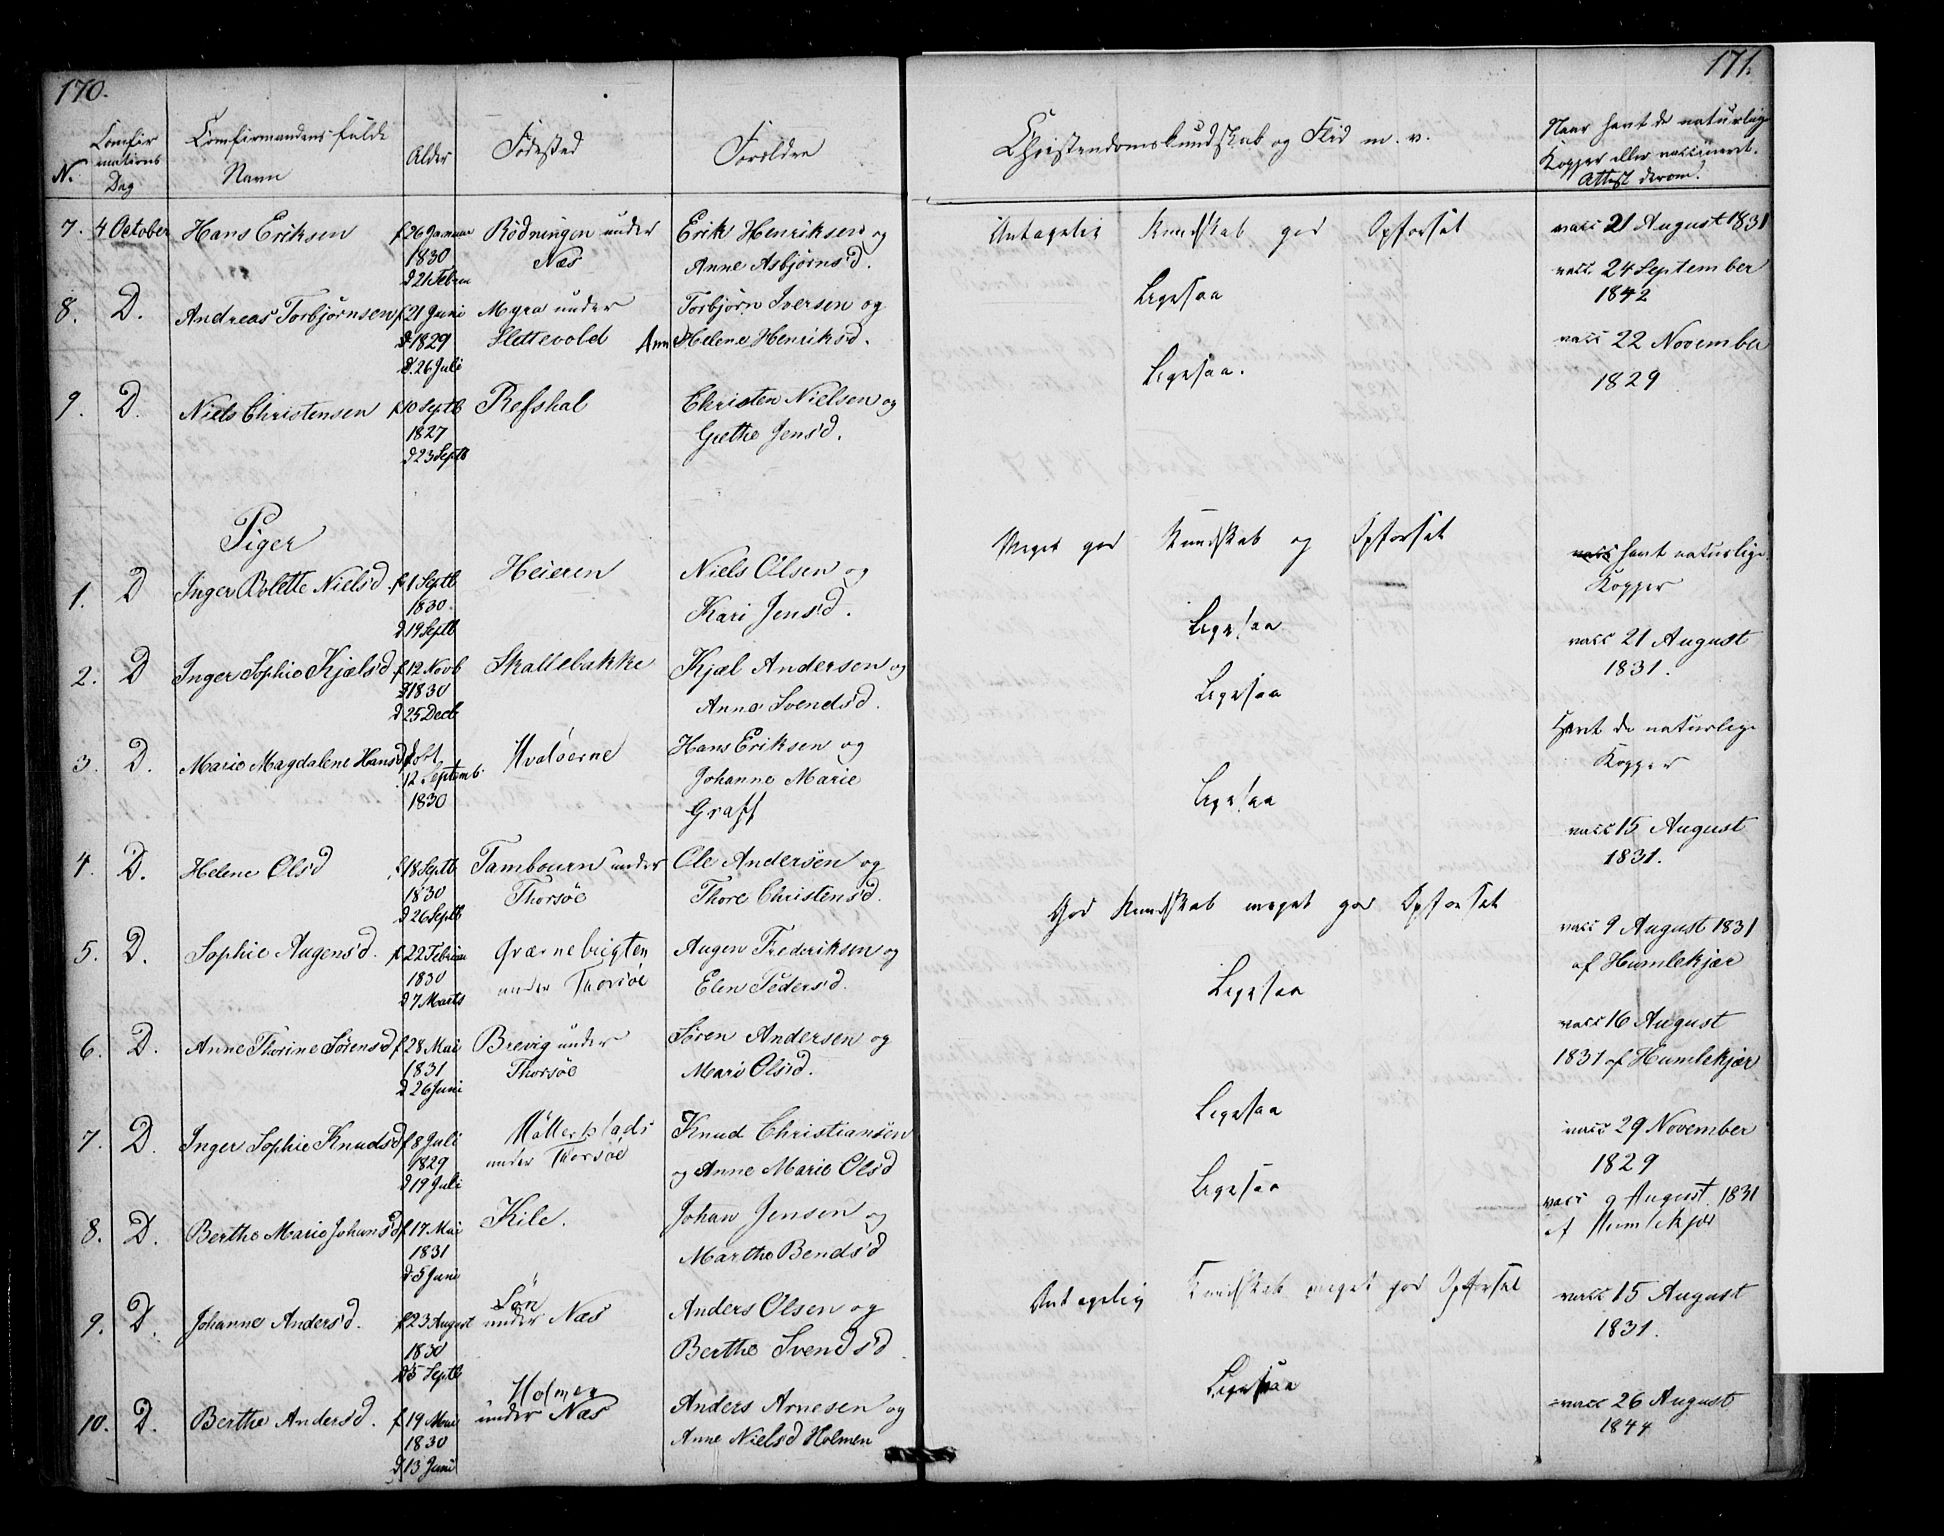 170.
171.
N.
Comfir
mations
Dag
Comfirmandens fulde
Navn
Alder
Fødested
Forældre
Christendomskundskab og Flid m. v.
Naar havt de naturlige
Kopper eller vaccineret.
Attest derom.
7. 4 October Hans Eriksen f 26 Januar Rödningen under Erik Henriksen og Antagelig Kundskab god Opførsel vacc 21 August 1831
1830 Næs Anne Asbjørnsd.
d 21 Febru
8. D. Andreas Torbjørnsen f 21 Juni Myra under Torbjørn Iversen og Ligesaa vacc 24 September
1829 Slettevold Anne Helene Henriksd. 1842
d. 26 Juli
9. D. Niels Christensen f 10 Septb Refshal Christen Nielsen og Ligesaa. vacc 22 November
1827 Grethe Jensd. 1829
d 23 Septb
Piger
1. D Inger Bolette Nielsd. f 1 Septb Heieren Niels Olsen og Meget god Kundskab og Opførsel vacc havt naturlige
1830. Kari Jensd. Kopper
d 19 Septb
2. D Inger Sophie Kjælsd f 12 Novb Skallebakke Kjæl Andersen og Ligesaa vacc 21 August
1830 Anne Svendsd. 1831.
d 25 Decb
3. D. Marie Magdalene Hansd Hvaløerne Hans Eriksen og Ligesaa Havt de naturlige
12 Septemb. Johanne Marie Kopper
1830 Graff
4. D. Helene Olsd f 18 Septb Tambourn under Ole Andersen og Ligesaa vacc 15 August
1830 Thorsøe Thore Christensd. 1831.
d 26 Septb
5. D. Sophie Augensd. f 22 Februar Grærnebrigten Augen Frederiksen og God Kundskab meget god Opførsel vacc 9 August 1831
1830 under Thorsøe Elen Pedersd. af Humlekjær
d 7 Marts
6. D. Anne Thorine Sørensd f 28 Mai Brevig under Søren Andersen og Ligesaa vacc 16 August
1831 Thorsøe Mari Olsd. 1831 af Humlekjær
d 26 Juni
7. D. Inger Sophie Knudsd f 8 Juli Möllerplads Knud Christiansen Ligesaa vacc 29 November
1829 under Thorsøe og Anne Marie Olsd 1829
d 19 Juli
8. D. Berthe Marie Johansd f 17 Mai Kile. Johan Jensen og Ligesaa vacc 9 August 1831
1831 Marthe Bendsd af Humlekjær
d 5 Juni
9. D. Johanne Andersd. f 23 August Lön under Næs Anders Olsen og Antagelig Kundskab meget god Opførsel vacc 15 August
1830 Berthe Svendsd 1831.
d 5 Septb
10. D. Berthe Andersd. f 19 Mai Holmen under Næs Anders Arnesen og Ligesaa vacc 26 August
1830 Anne Nielsd Holmen 1844
d 13 Juni